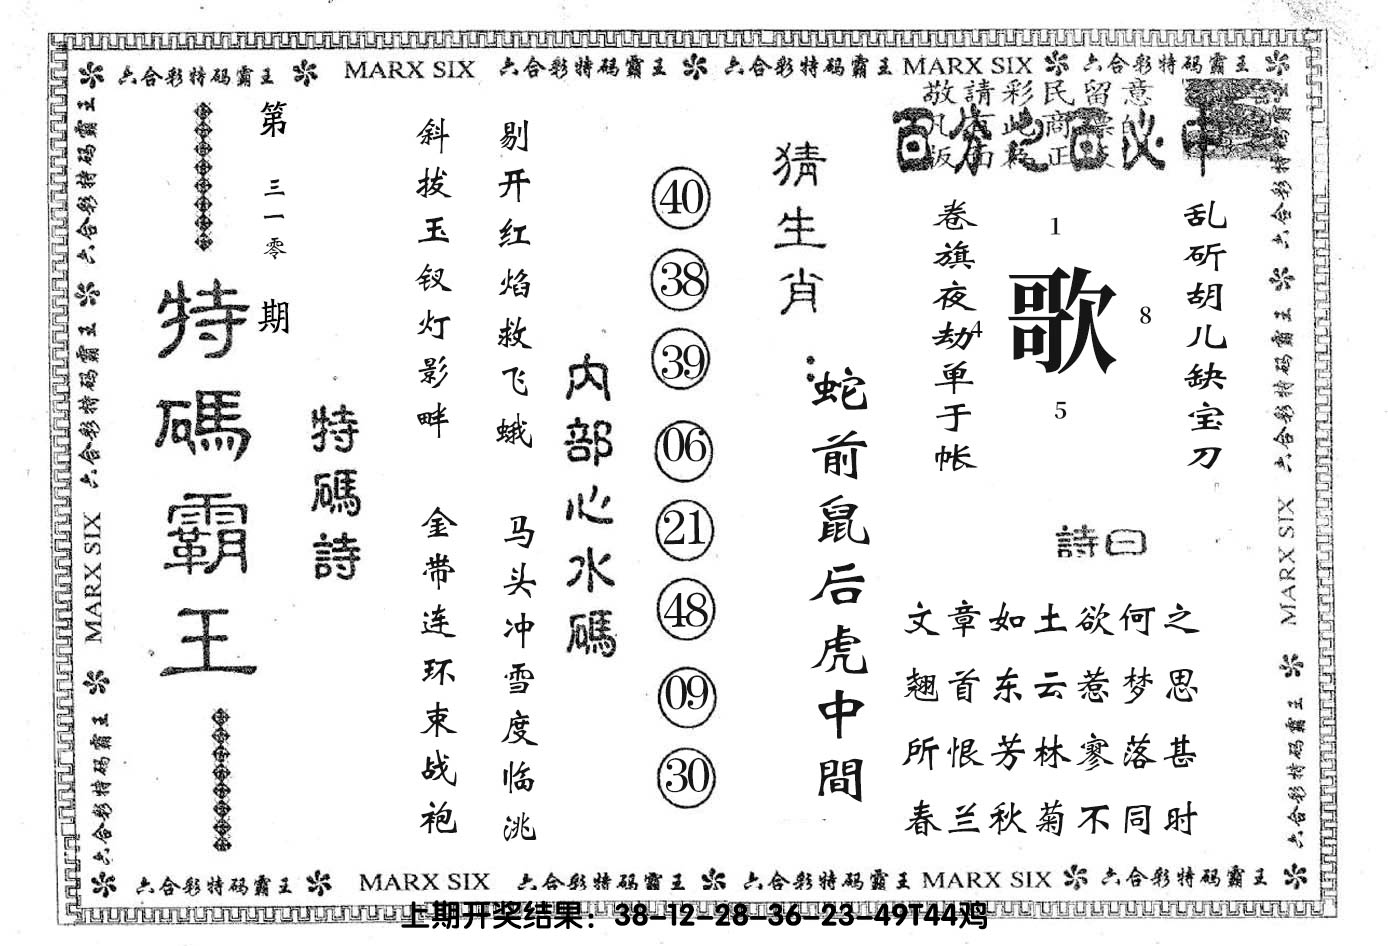 六合彩特码霸王 MARX SIX 六合彩特码霸王 六合彩特码霸王 MARX SIX 六合彩特码霸王
敬請彩民留意
百分之百必中
乱斫胡儿缺宝刀
1
歌
8
4
5
卷旗夜劫单于帐
詩曰
文章如土欲何之
翘首东云惹梦思
所恨芳林寥落甚
春兰秋菊不同时
猜生肖:
蛇前鼠后虎中間
40
38
39
06
21
48
09
30
内部心水碼
剔开红焰救飞蛾
马头冲雪度临洮
斜拔玉钗灯影畔
金带连环束战袍
特碼詩
第三一零期
特碼霸王
六合彩特码霸王 六合彩特码霸王 MARX SIX 六合彩特码霸王
六合彩特码霸王 六合彩特码霸王 MARX SIX 六合彩特码霸王
六合彩特码霸王 MARX SIX 六合彩特码霸王 六合彩特码霸王 MARX SIX 六合彩特码霸王
上期开奖结果：38-12-28-36-23-49T44鸡